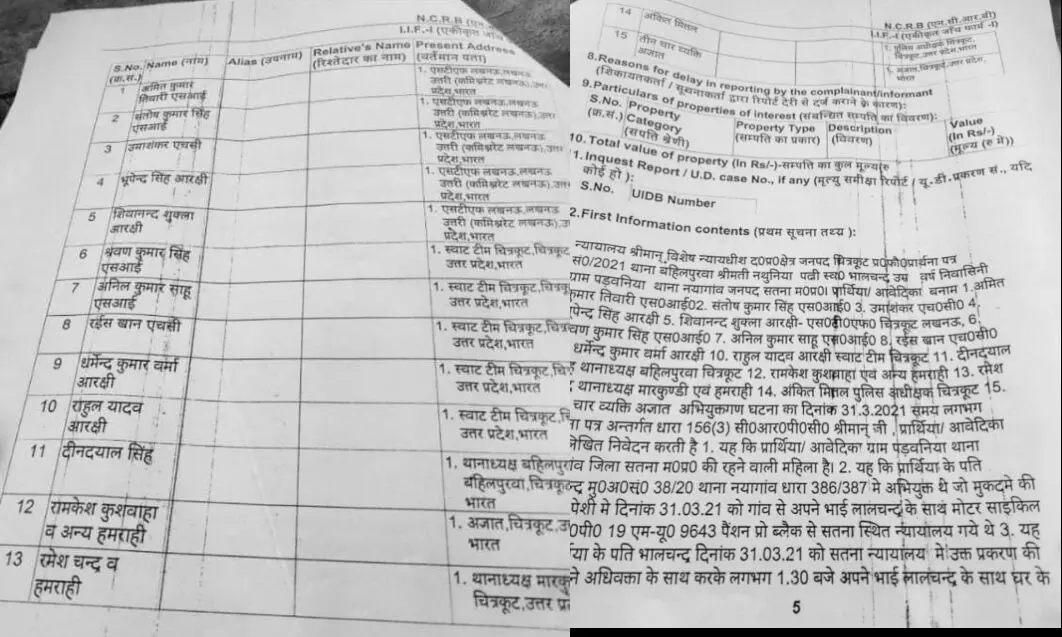 N.C.R.B (एन.
I.I.F.-I (एकीकृत जाँच
S.No. Name (नाम) Alias (उपनाम) Relative's Name Present Address
(क्र.स.) (रिश्तेदार का नाम) (वर्तमान पता)
1 अमित कुमार तिवारी एसआई 1. एसटीएफ लखनऊ,लखनऊ
उत्तरी (कमिश्नरेट लखनऊ),उत्तर
प्रदेश,भारत
2 संतोष कुमार सिंह एसआई 1. एसटीएफ लखनऊ,लखनऊ
उत्तरी (कमिश्नरेट लखनऊ),उत्तर
प्रदेश,भारत
3 उमाशंकर एचसी 1. एसटीएफ लखनऊ,लखनऊ
उत्तरी (कमिश्नरेट लखनऊ),उत्तर
प्रदेश,भारत
4 भूपेन्द सिंह आरक्षी 1. एसटीएफ लखनऊ,लखनऊ
उत्तरी (कमिश्नरेट लखनऊ),उत्तर
प्रदेश,भारत
5 शिवानन्द शुक्ला आरक्षी 1. एसटीएफ लखनऊ,लखनऊ
उत्तरी (कमिश्नरेट लखनऊ),उ
प्रदेश,भारत
6 श्रवण कुमार सिंह एसआई 1. स्वाट टीम चित्रकूट,चित्रकूट
उत्तर प्रदेश,भारत
7 अनिल कुमार साहू एसआई 1. स्वाट टीम चित्रकूट,चित्रकू
उत्तर प्रदेश,भारत
8 रईस खान एचसी 1. स्वाट टीम चित्रकूट,चित्र
उत्तर प्रदेश,भारत
9 धर्मेन्द कुमार वर्मा आरक्षी 1. स्वाट टीम चित्रकूट,चि
उत्तर प्रदेश,भारत
10 राहुल यादव आरक्षी 1. स्वाट टीम चित्रकूट,चि
उत्तर प्रदेश,भारत
11 दीनदयाल सिंह 1. थानाध्यक्ष बहिलपुर
बहिलपुरवा,चित्रकूट
भारत
12 रामकेश कुशवाहा व अन्य हमराही 1. अज्ञात,चित्रकूट,उ
भारत
13 रमेश चन्द व हमराही 1. थानाध्यक्ष मारकु
चित्रकूट,उत्तर प्र
N.C.R.B (एन.सी.आर.बी)
I.I.F.-I (एकीकृत जाँच फार्म -I)
14 अंकित मित्तल 1. पुलिस अधीक्षक चित्रकूट,
चित्रकूट,उत्तर प्रदेश,भारत
15 तीन चार व्यक्ति अज्ञात 1. अज्ञात,चित्रकूट,उत्तर प्रदेश,
भारत
8.Reasons for delay in reporting by the complainant/informant
(शिकायतकर्ता / सूचनाकर्ता द्वारा रिपोर्ट देरी से दर्ज कराने के कारण):
9.Particulars of properties of interest (संबन्धित सम्पत्ति का विवरण):
S.No. Property Property Type Description Value
(क्र.सं.) Category (सम्पत्ति का प्रकार) (विवरण) (In Rs/-)
(संपत्ति श्रेणी) (मूल्य (रु में))
10.Total value of property (In Rs/-)-सम्पत्ति का कुल मूल्य(रु
1.Inquest Report / U.D. case No., if any (मृत्यु समीक्षा रिपोर्ट / यू.डी.प्रकरण सं., यदि
कोई हो ):
S.No. UIDB Number
2.First Information contents (प्रथम सूचना तथ्य ):
न्यायालय श्रीमान् विशेष न्यायधीश द0प्र0क्षेत्र जनपद चित्रकूट प्र0फौ0प्रार्थना पत्र
सं0/2021 थाना बहिलपुरवा श्रीमती नथुनिया पत्नी स्व0 भालचन्द उम्र वर्ष निवासिनी
ग्राम पड़वनिया थाना नयागांव जनपद सतना म0प्र0। प्रार्थिया/ आवेदिका बनाम 1.अमित
कुमार तिवारी एस0आई02. संतोष कुमार सिंह एस0आई0 3. उमाशंकर एच0सी0 4.
पेन्द सिंह आरक्षी 5. शिवानन्द शुक्ला आरक्षी- एस0टी0एफ0 चित्रकूट लखनऊ, 6.
वण कुमार सिंह एस0आई0 7. अनिल कुमार साहू एस0आई0 8. रईस खान एच0सी0
धर्मेन्द कुमार वर्मा आरक्षी 10. राहुल यादव आरक्षी स्वाट टीम चित्रकूट 11. दीनदयाल
थानाध्यक्ष बहिलपुरवा चित्रकूट 12. रामकेश कुशवाहा एवं अन्य हमराही 13. रमेश
थानाध्यक्ष मारकुण्डी एवं हमराही 14. अंकित मित्तल पुलिस अधीक्षक चित्रकूट 15.
चार व्यक्ति अज्ञात अभियुक्तगण घटना का दिनांक 31.3.2021 समय लगभग
ना पत्र अन्तर्गत धारा 156(3) सी0आर0पी0सी0 श्रीमान् जी , प्रार्थिया/ आवेदिका
लिखित निवेदन करती है 1. यह कि प्रार्थिया/ आवेदिका ग्राम पड़वनिया थाना
गांव जिला सतना म0प्र0 की रहने वाली महिला है। 2. यह कि प्रार्थिया के पति
न्द मु0अ0सं0 38/20 थाना नयागांव धारा 386/387 मे अभियुक्त थे जो मुकदमे की
पेशी मे दिनांक 31.03.21 को गांव से अपने भाई लालचन्द के साथ मोटर साइकिल
0पी0 19 एम-यू0 9643 पैंशन प्रो ब्लैक से सतना स्थित न्यायालय गये थे 3. यह
या के पति भालचन्द दिनांक 31.03.21 को सतना न्यायालय मे उक्त प्रकरण की
ने अधिवक्ता के साथ करके लगभग 1.30 बजे अपने भाई लालचन्द के साथ घर के
5